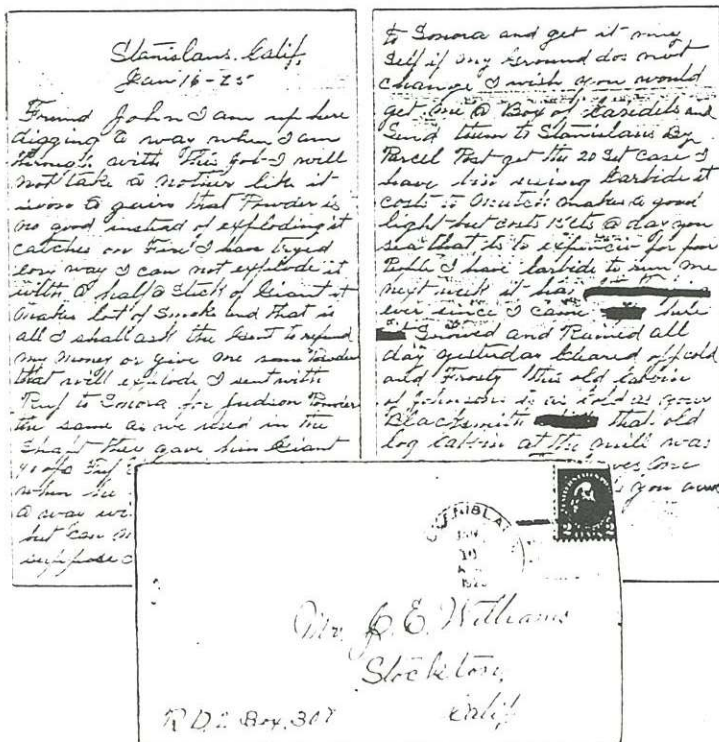 Stanislaus. Calif,
Jan 16-25
Friend John I am up here
digging a way when I am
through with this Job I will
not take a nother like it
soon a gain that Powder is
no good instead of exploding it
catches on Fire I have tryed
way I can not explode it
with a half a stick of Giant it
makes lot of Smoke and that is
all I shall ask the Agent to refund
my money or give me some Powder
that will explode I sent with
to Sonora for Judson Powder
the same as we used in the
Shaft they gave him Giant
when he
a way
but can
suppose
to Sonora and get it my
Self if my Ground dos not
change I wish you would
get me a Box of and
Send them to Stanislaus By
Parcel Post get the 20 Set case I
have bin using Carbide it
costs to mutch makes a good
light but costs 15 cts a day you
see that is to expensive for poor
People I have Carbide to run me
next week it has
ever since I came here
Snowed and Rained all
day yesterday Cleared off cold
and Frosty this old Cabin
of Johnsons is as cold as your
Blacksmith that old
log Cabin at the mill was
you
STANISLA
JAN
2
Mr. J. E. Williams
Stockton,
R.D.2 Box. 307
Calif